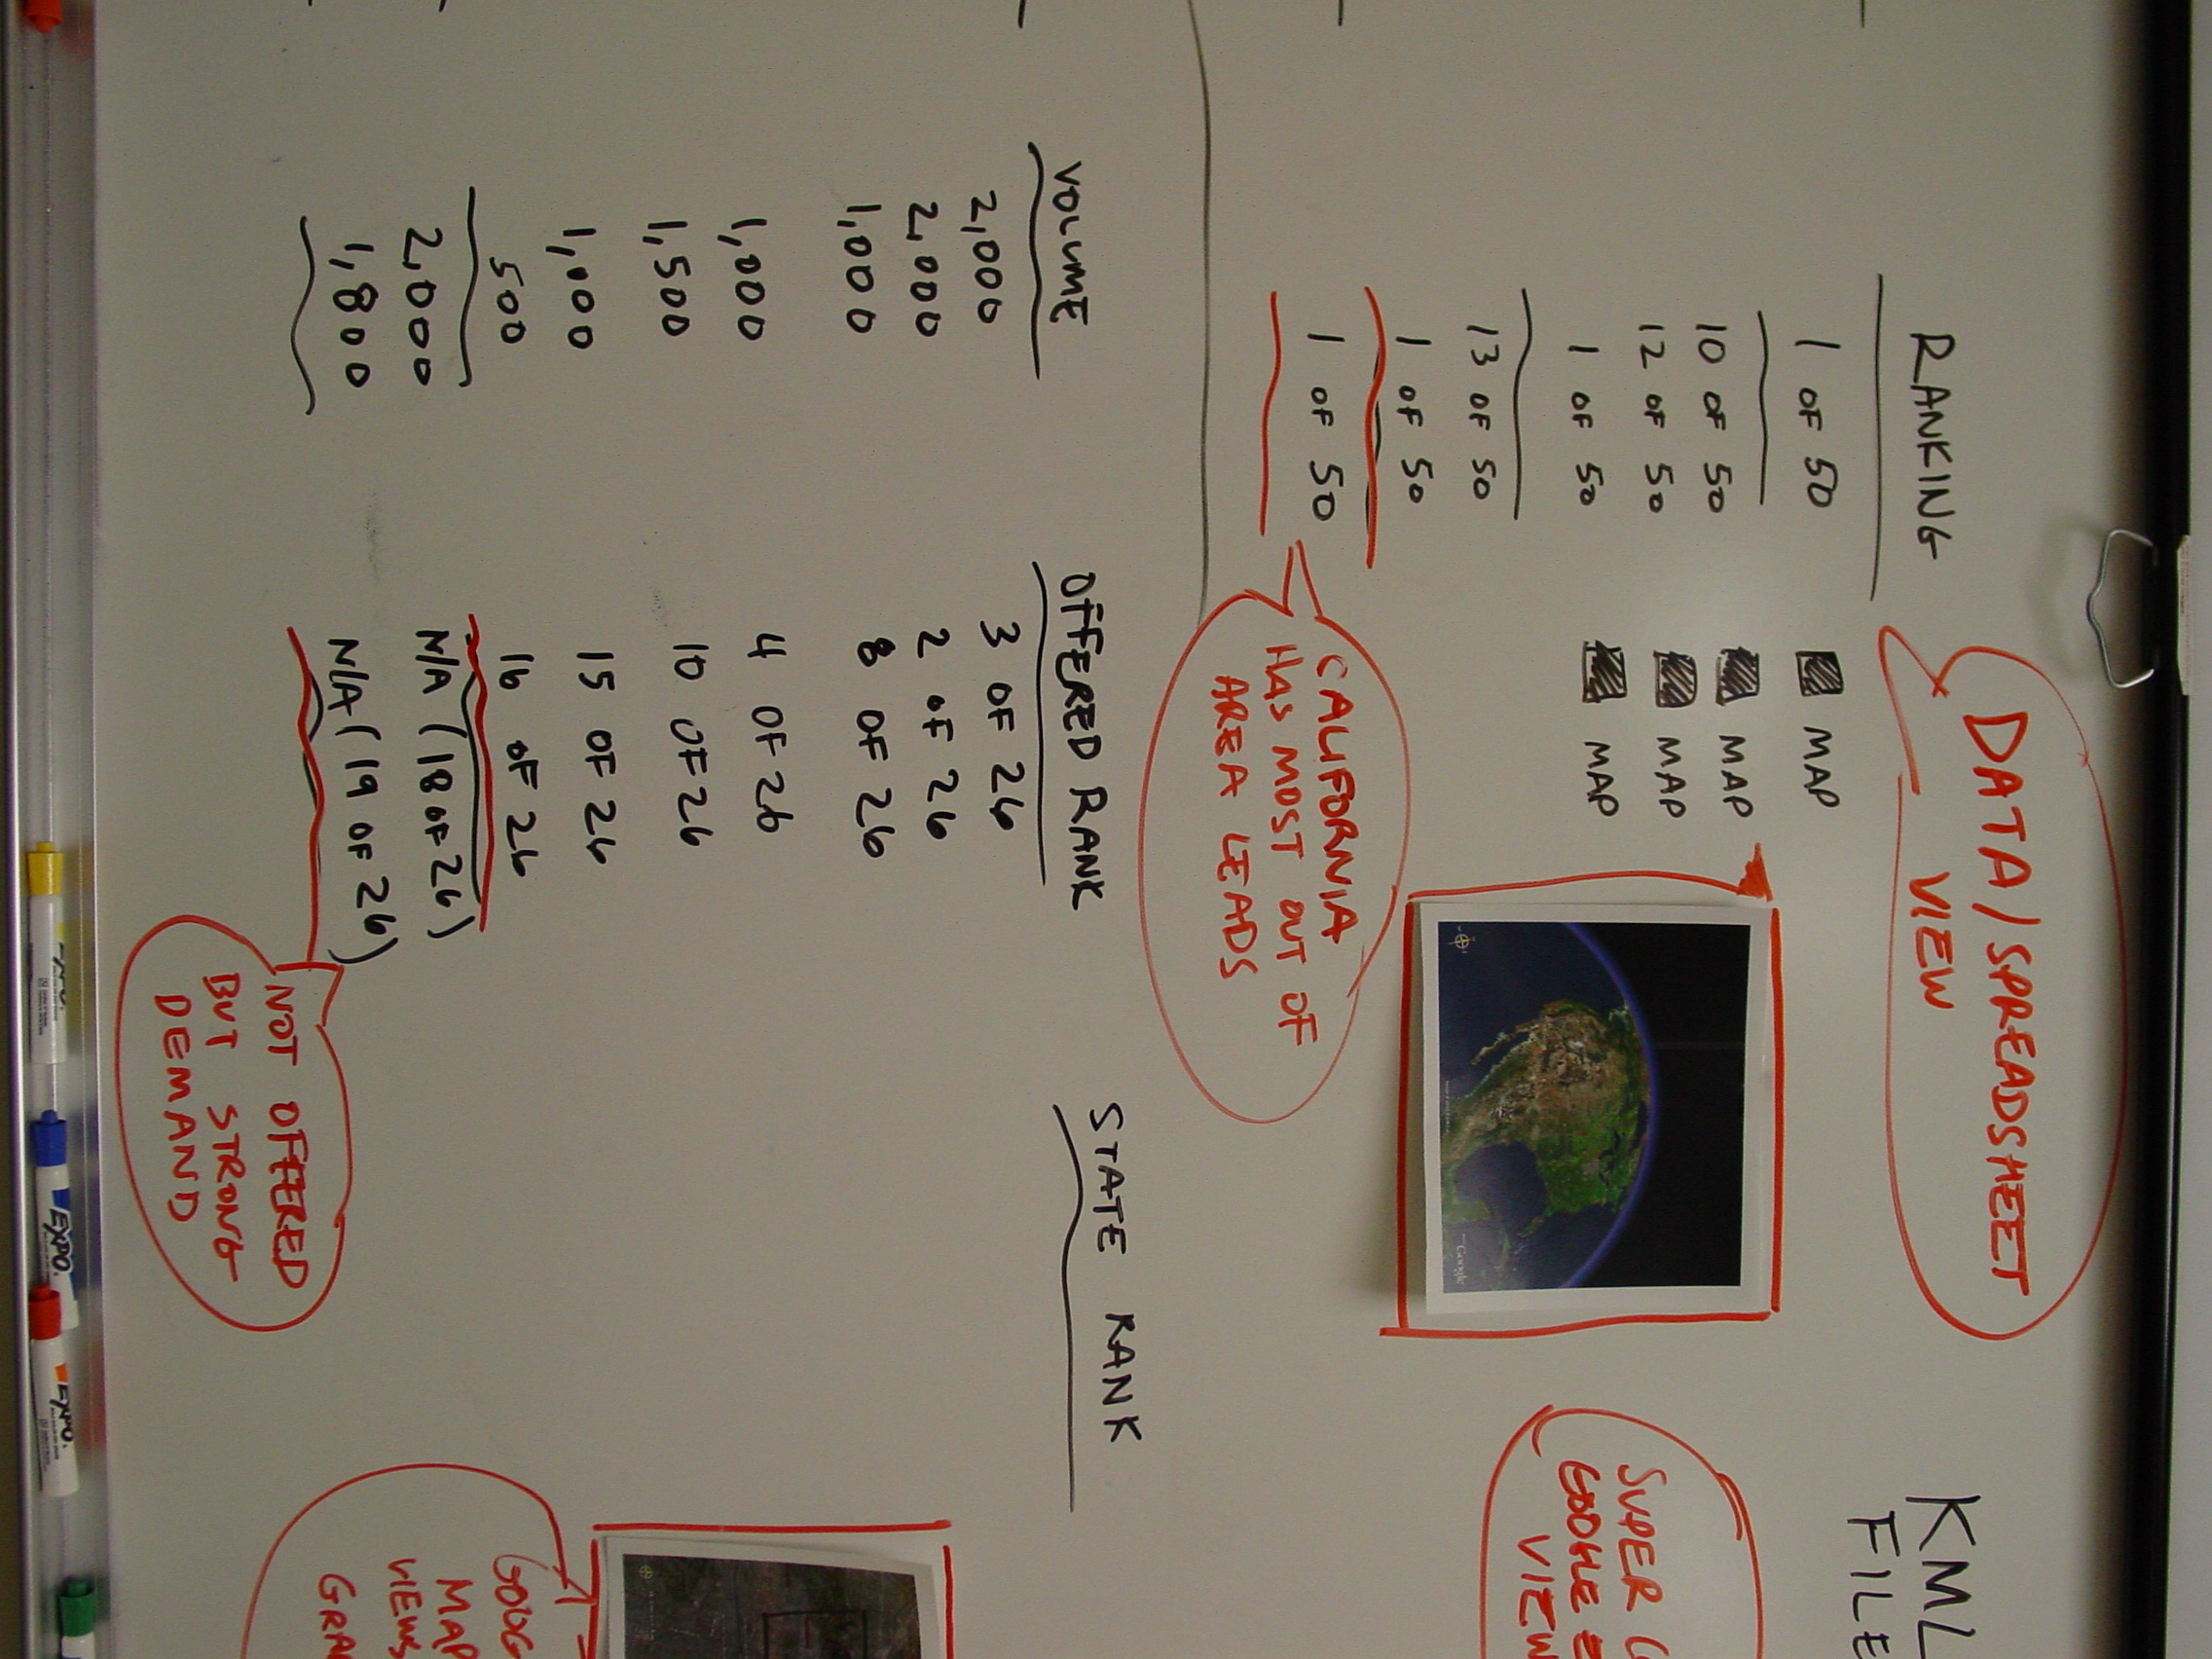 RANKING
1 OF 50
10 OF 50
12 OF 50
1 OF 50
13 OF 50
1 OF 50
1 OF 50
MAP
MAP
MAP
MAP
DATA/SPREADSHEET
VIEW
CALIFORNIA
HAS MOST OUT OF
AREA LEADS
Google
KML
FILE
SUPER
VIEW
VOLUME
2,000
2,000
1,000
1,000
1,500
1,000
500
2,000
1,800
OFFERED RANK
3 OF 26
2 OF 26
8 OF 26
4 OF 26
10 OF 26
15 OF 26
16 OF 26
N/A (18 OF 26)
N/A (19 OF 26)
NOT OFFERED
BUT STRONG
DEMAND
STATE RANK
GOOG
MAP
VIEWS
GRA
EXPO.
EXPO.